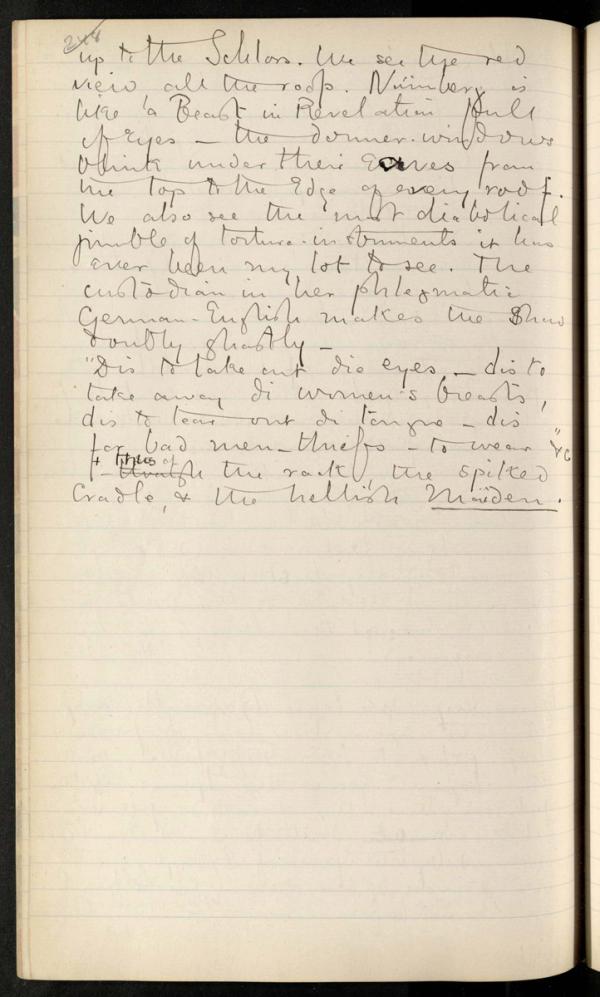 up to the Schloss. We see the red
view all the roofs. Nürnberg is
like a Beast in Revelation full
of Eyes – the dormer-windows
blink under their Eaves from
the top to the Edge of every roof.
We also see the most diabolical
jumble of torture-instruments it has
ever been my lot to see. The
custodian in her phlegmatic
German-English makes the Show
doubly ghastly –
"Dis to take out die eyes – dis to
take away di women's breasts,
dis to tear out di tongue – dis
for bad men – thiefs – to wear" &c
the rack, the spiked
Cradle, & the hellish Maiden.